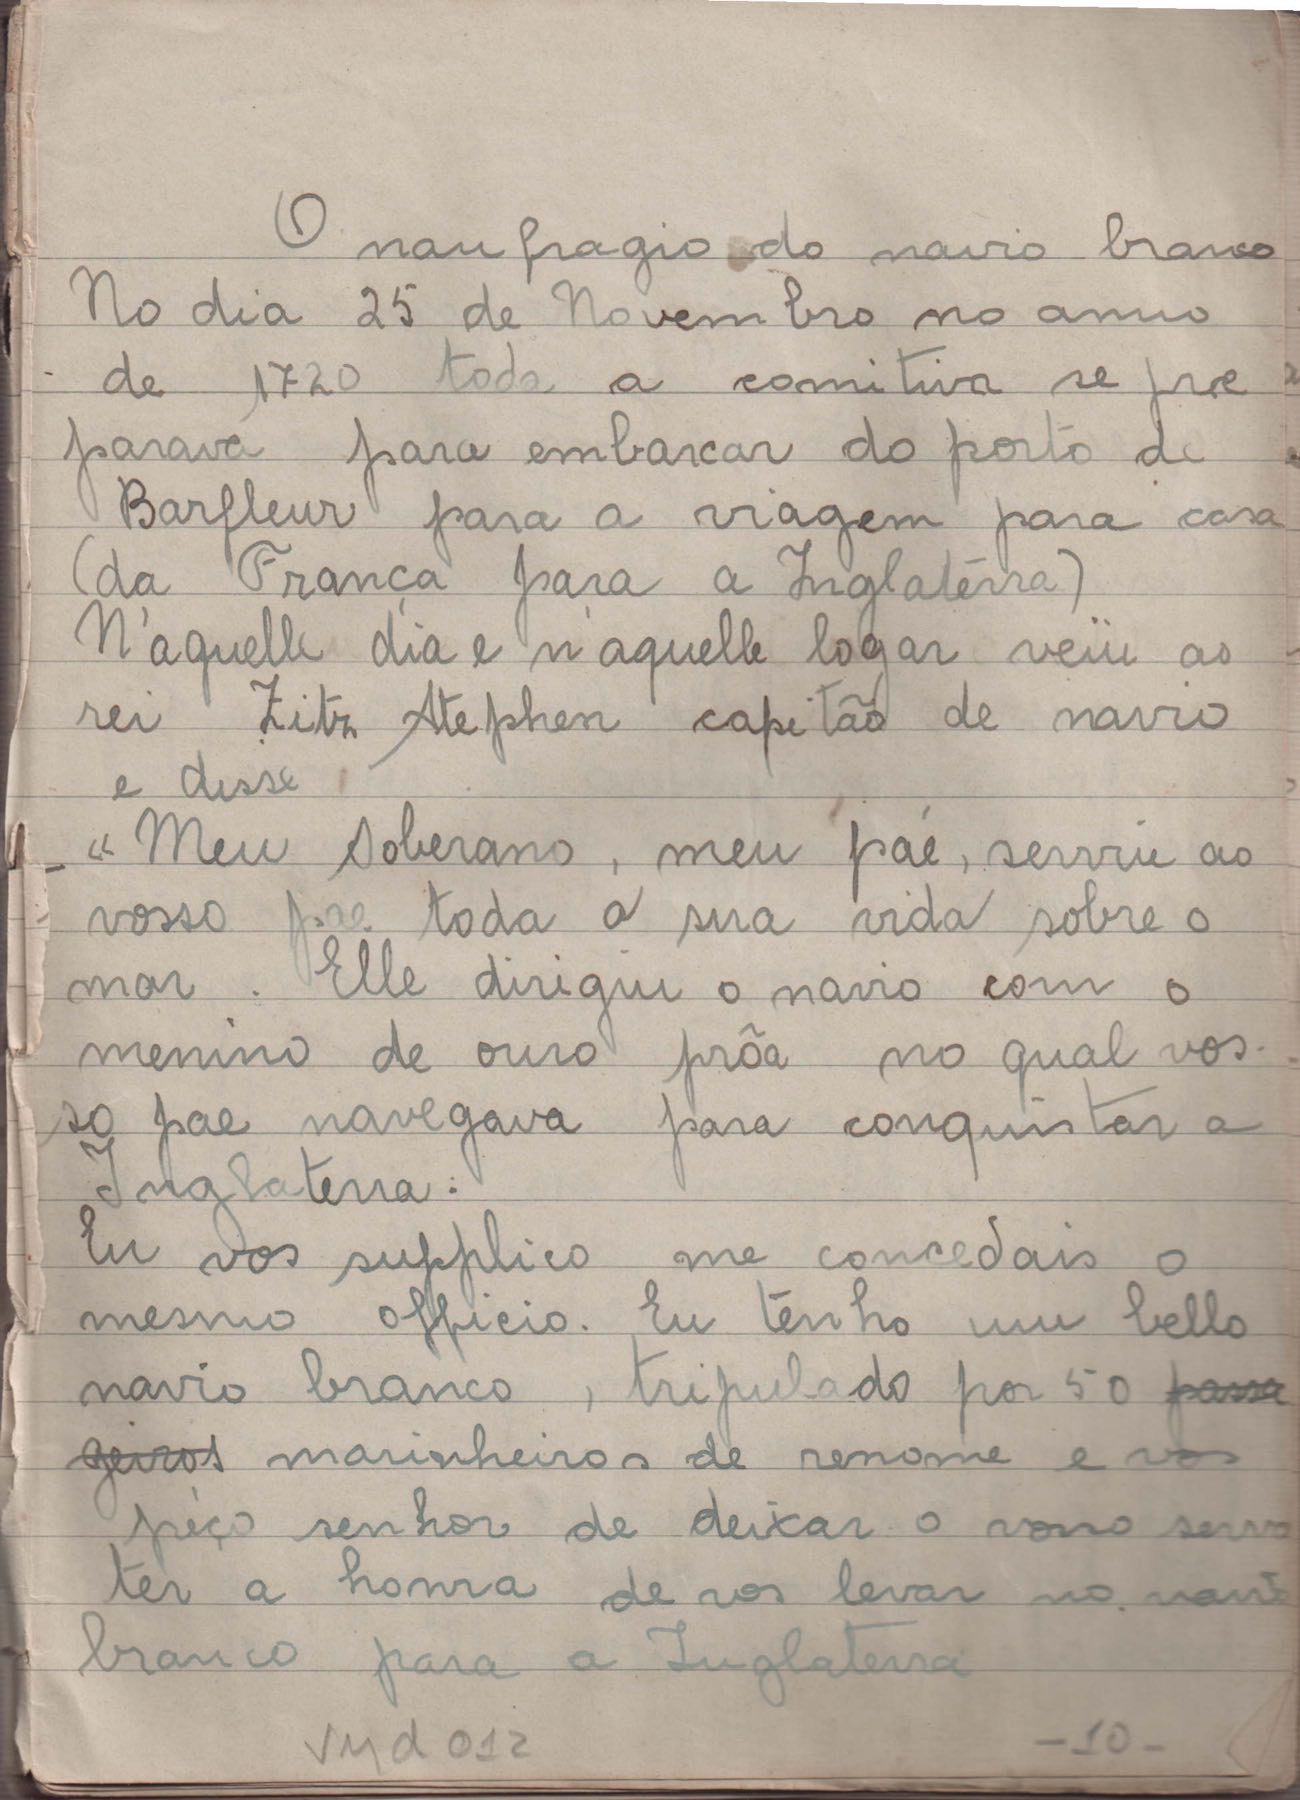 O naufragio do navio branco
No dia 25 de Novembro no anno
de 1720 toda a comitiva se pre
parava para embarcar do porto de
Barfleur para a viagem para casa
(da França para a Inglatérra)
N'aquelle dia e n'aquelle logar veiu ao
rei Fitz Stephen capitão de navio
e disse
"Meu Soberano, meu páe, serviu ao
vosso pae toda a sua vida sobre o
mar. Elle dirigiu o navio com o
menino de ouro prôa no qual vos-
so pae navegava para conquistar a
Inglaterra.
Eu vos supplico me concedais o
mesmo officio. Eu tenho um bello
navio branco, tripulado por 50 passa
geiros marinheiros de renome e vos
peço senhor de deixar o vosso servo
ter a honra de vos levar no navio
branco para a Inglaterra
Vyd 012
-10-